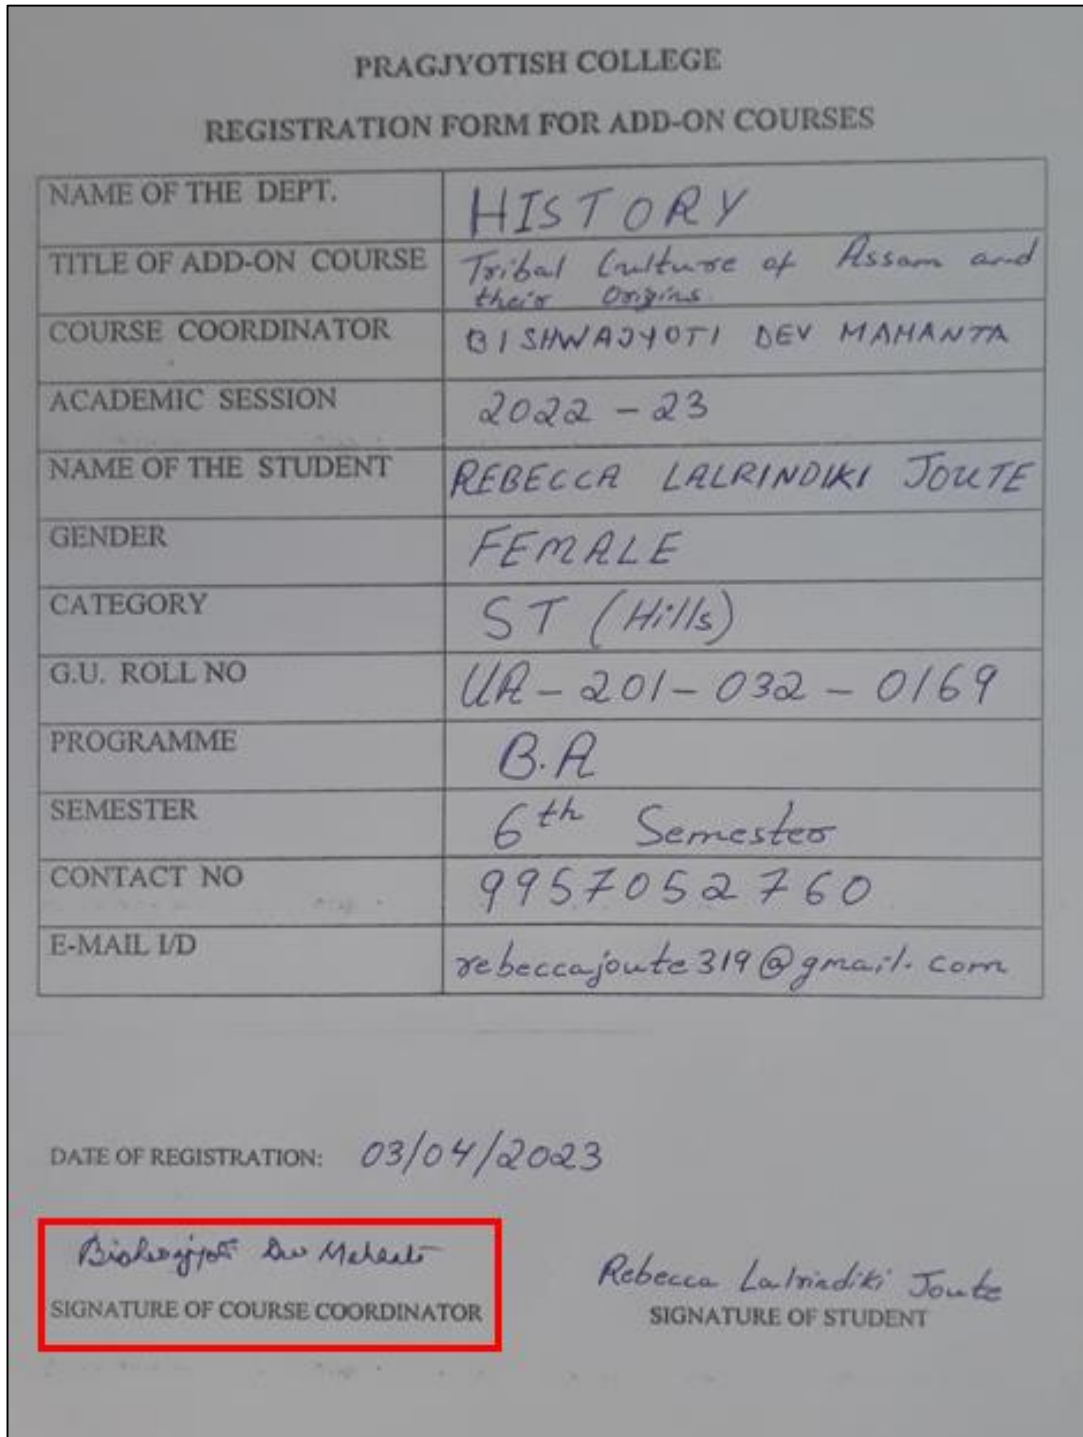 PRAGJYOTISH COLLEGE
REGISTRATION FORM FOR ADD-ON COURSES
NAME OF THE DEPT. HISTORY
TITLE OF ADD-ON COURSE Tribal Culture of Assam and
their Origins.
COURSE COORDINATOR BISHWAJYOTI DEV MAHANTA
ACADEMIC SESSION 2022 - 23
NAME OF THE STUDENT REBECCA LALRINDIKI JOUTE
GENDER FEMALE
CATEGORY ST (Hills)
G.U. ROLL NO UA - 201 - 032 - 0169
PROGRAMME B.A
SEMESTER 6th Semester
CONTACT NO 9957052760
E-MAIL I/D rebeccajoute319@gmail.com
DATE OF REGISTRATION: 03/04/2023
Bishwajyoti Dev Mahanta
SIGNATURE OF COURSE COORDINATOR
Rebecca Lalrindiki Joute
SIGNATURE OF STUDENT